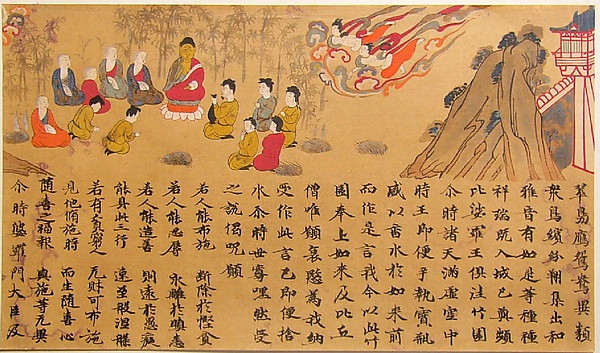 翠鳬鴈鴛鴦異類
衆鳥繽紛翔集出和
雅音有如是等種種
祥瑞既入城已與頻
毗娑羅王俱往竹園
尒時諸天滿虚空中
時王即便手執寶瓶
盛以香水於如来前
而作是言我今以此竹
園奉上如来及比丘
僧唯願哀愍為我納
受作此言已即便捨
水尒時世尊嘿然受
之說偈呪願
若人能布施 断除於慳貪
若人能忍辱 永離於瞋恚
若人能造善 則遠於愚癡
能具此三行 速至般涅槃
若有貧窮人 无財可布施
見他脩施時 而生随喜心
随喜之福報 與施等无異
尒時婆羅門大臣及